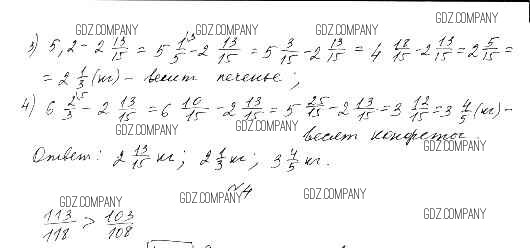 GDZ.COMPANY GDZ.COMPANY GDZ.COMPANY GDZ.COMPANY
3) 5,2 - 2 13/15 = 5 1/5 - 2 13/15 = 5 3/15 - 2 13/15 = 4 18/15 - 2 13/15 = 2 5/15 =
= 2 1/3 (кг) - весит печенье;
4) 6 2/3 - 2 13/15 = 6 10/15 - 2 13/15 = 5 25/15 - 2 13/15 = 3 12/15 = 3 4/5 (кг) -
GDZ.COMPANY GDZ.COMPANY
весят конфеты.
GDZ.COMPANY
Ответ: 2 13/15 кг; 2 1/3 кг; 3 4/5 кг.
№4
GDZ.COMPANY GDZ.COMPANY GDZ.COMPANY GDZ.COMPANY
113/118 > 103/108